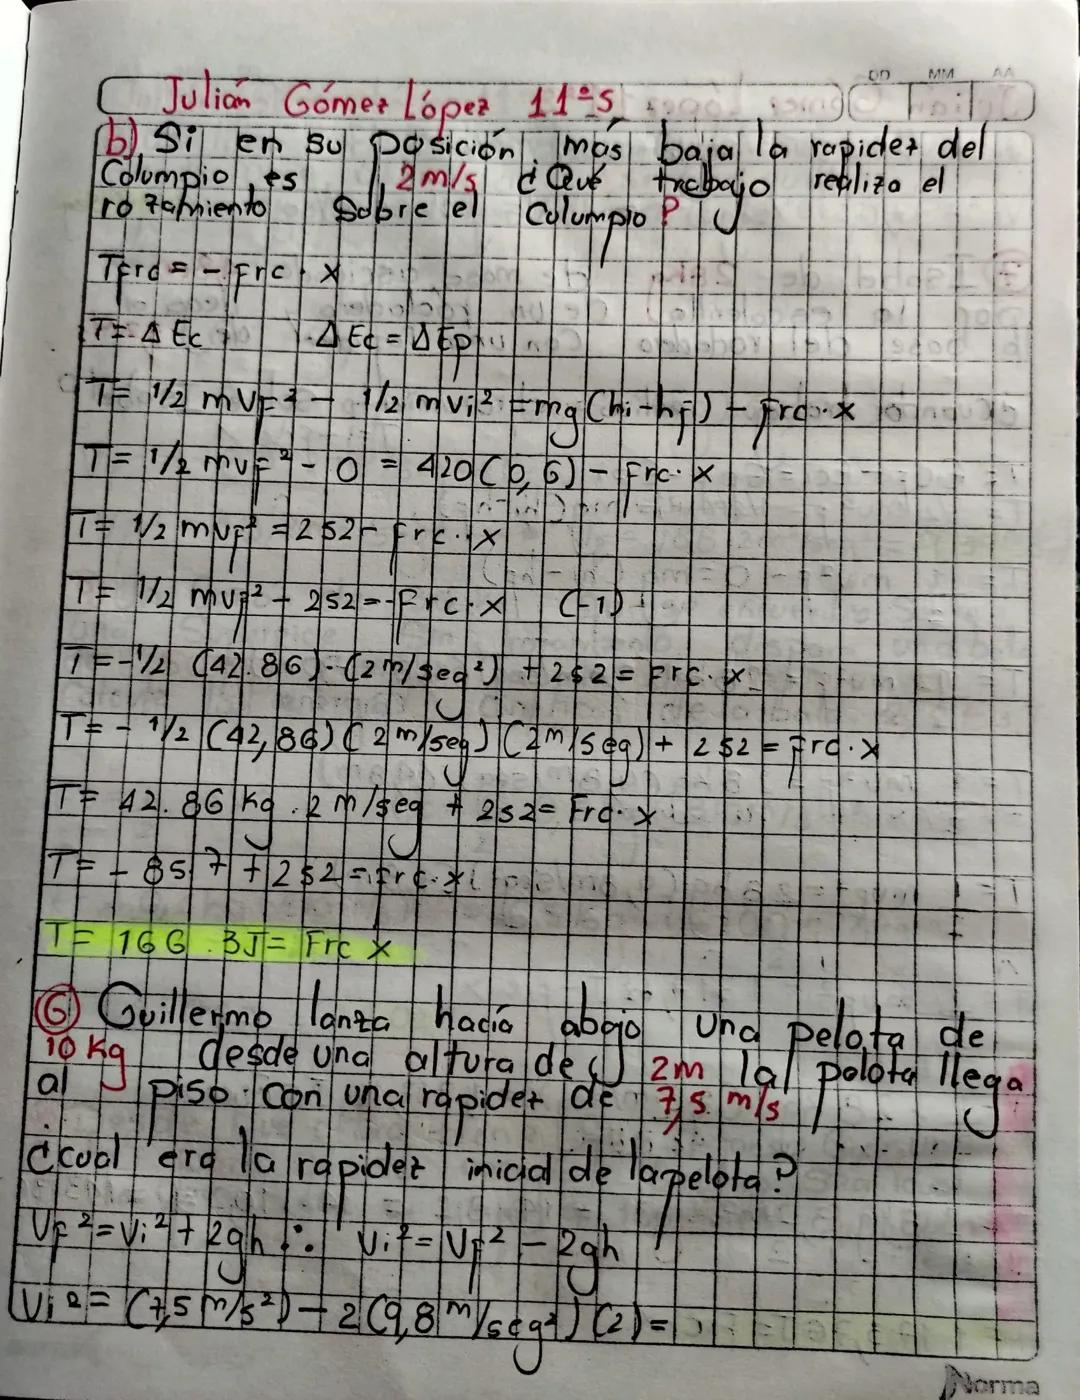 DD MM AA
Julián Gómez López 11°5
b) Si en su posición más baja la rapidez del
Columpio es 2 m/s ¿Qué trabajo realiza el
rozamiento sobre el Columpio?
Tfrc = - frc · x
T= Δ Ec ΔEc = ΔEp
T= 1/2 mVF² - 1/2 mvi² = mg(hi-hf) - frc·x
T= 1/2 mvF² - 0 = 420(0,6) - frc·x
T= 1/2 mvf² = 252 - frc·x
T= 1/2 mvf² - 252 = -frc·x (-1)
T= -1/2 (42.86)·(2m/seg²) + 252 = Frc·x
T= - 1/2 (42,86)(2m/seg)(2m/seg) + 252 = frc·x
T= 42.86 kg · 2 m/seg + 252 = Frc·x
T= - 85,7 + 252 = frc·x
T= 166.3J = Frc x
6 Guillermo lanza hacía abajo una pelota de
10 Kg desde una altura de 2m la pelota llega
al piso con una rapidez de 7,5 m/s
¿cual era la rapidez inicial de la pelota?
VF² = Vi² + 2gh ∴ Vi² = Vf² - 2gh
Vi² = (7,5 m/s²) - 2(9,8 m/seg²)(2) =
Norma